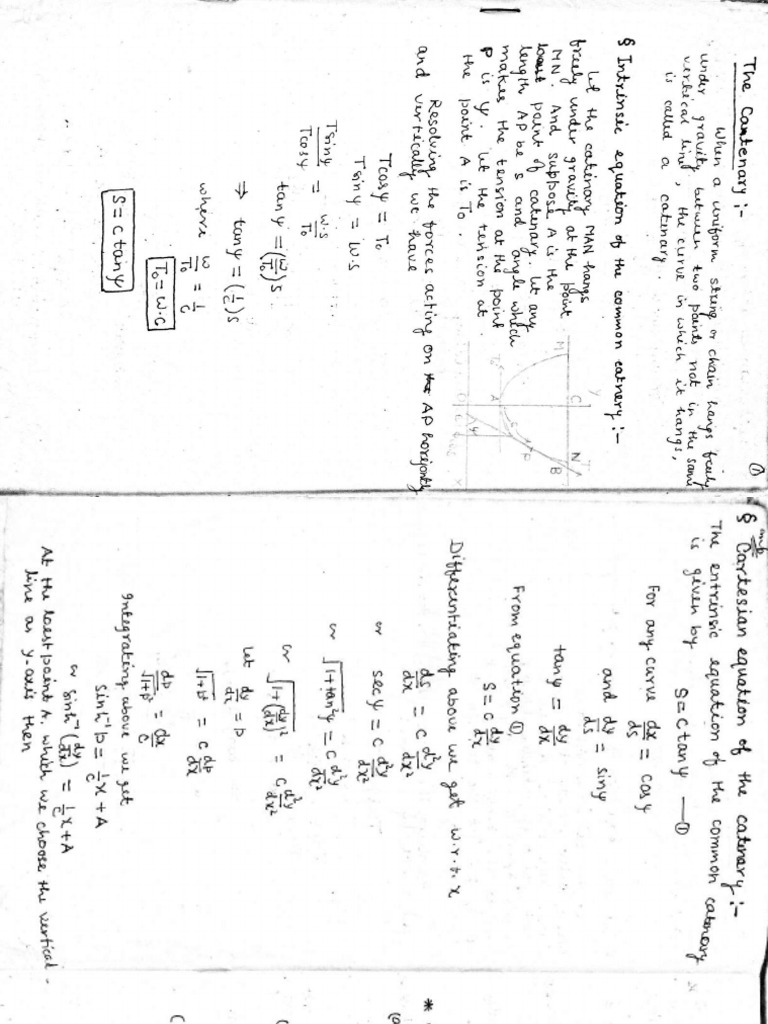 ①
The Cantenary :-
When a uniform string or chain hangs freely
under gravity between two points not in the same
vertical line, the curve in which it hangs,
is called a catenary.
§ Intrinsic equation of the common catnery :-
Let the catinary MAN hangs
freely under gravity at the point
MN. And suppose A is the
lowest point of catenary. Let any
length AP be s and angle which
makes the tension at the point
P is ψ. Let the tension at
the point A is T₀.
Y
M C N T
B
P
S
T₀ A
ψ
O
X
Resolving the forces acting on AP horizontly
and vertically we have
Tcosψ = T₀
Tsinψ = w.s
Tsinψ/Tcosψ = w.s/T₀
tanψ = (w/T₀)s
⇒ tanψ = (1/c)s
where w/T₀ = 1/c
T₀ = w.c
S = c tanψ
imp
§ Cartesian equation of the catenary :-
The entrinsic equation of the common catenary
is given by S = c tanψ —①
For any curve dx/ds = cosψ
and dy/ds = sinψ
tanψ = dy/dx
From equation ①
S = c dy/dx
Differentiating above we get w.r.t. x
ds/dx = c d²y/dx²
or secψ = c d²y/dx²
or √1+tan²ψ = c d²y/dx²
or √1+(dy/dx)² = c d²y/dx²
Let dy/dx = p
√1+p² = c dp/dx
dp/√1+p² = dx/c
Integrating above we get
sinh⁻¹p = 1/c x + A
or sinh⁻¹(dy/dx) = 1/c x + A
At the lowest point A, which we choose the vertical-
line as y-axis then
*